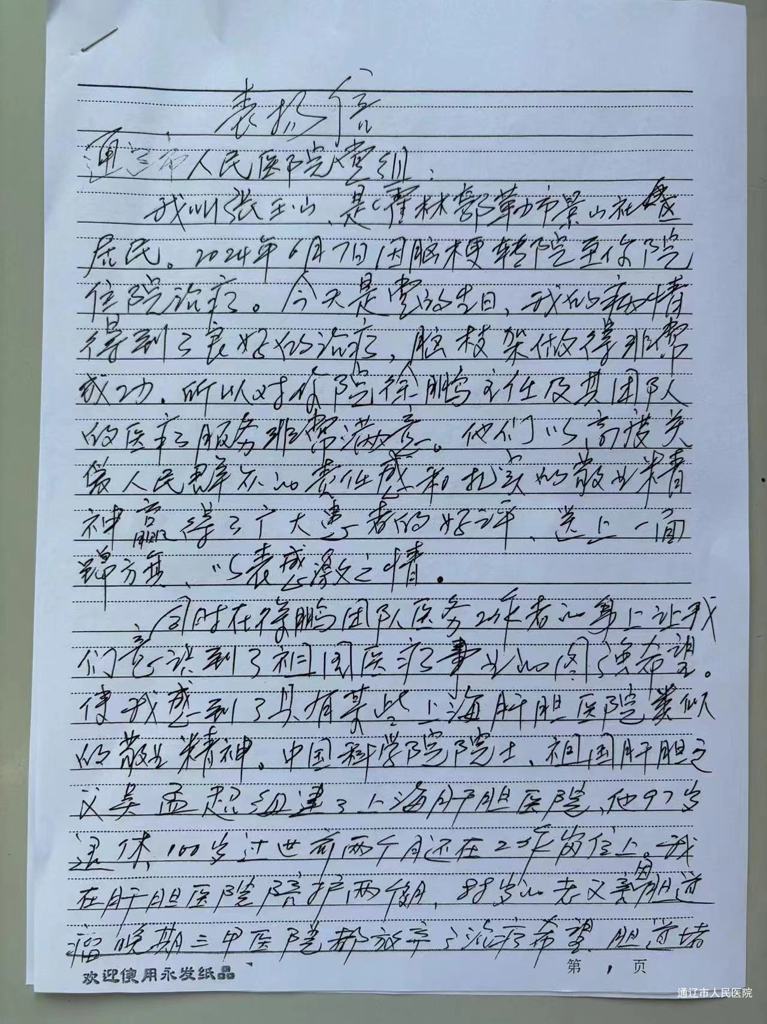 表扬信
通辽市人民医院党组：
我叫张玉山，是霍林郭勒市景山社区
居民。2024年6月7日因脑梗转院至你院
住院治疗。今天是党的生日，我的病情
得到了良好的治疗，脑枝架做得非常
成功。所以对你院徐鹏主任及其团队
的医疗服务非常满意。他们以高度关
爱人民群众的责任感和扎实的敬业精
神赢得了广大患者的好评，送上一面
锦旗、以表感激之情。
同时在徐鹏团队医务工作者的身上让我
们意识到了祖国医疗事业的图强希望。
使我感到了具有某些上海肝胆医院类似
的敬业精神。中国科学院院士、祖国肝胆之
父吴孟超组建了上海肝胆医院，他97岁
退休，100岁过世前两个月还在工作岗位上。我
在肝胆医院陪护两个月，88岁的老父亲胆道
瘤晚期三甲医院都放弃了治疗希望 胆道堵
欢迎使用永发纸品
第 1 页
通辽市人民医院